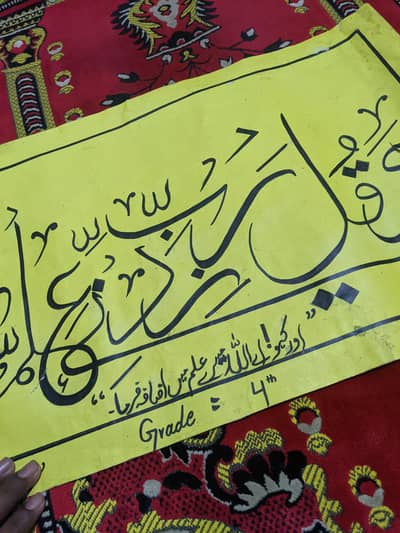 وَقُل رَّبِّ زِدْنِي عِلْمًا
"اور کہو! اے اللہ میرے علم میں اضافہ فرما۔"
Grade : 4th